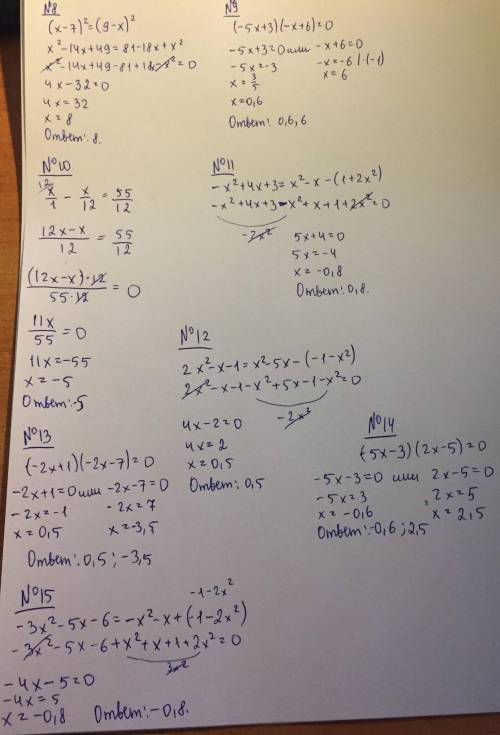 №8
(x-7)²=(9-x)²
x²-14x+49=81-18x+x²
x²-14x+49-81+18x-x²=0
4x-32=0
4x=32
x=8
Ответ: 8.
№9
(-5x+3)(-x+6)=0
-5x+3=0 или -x+6=0
-5x=-3 -x=-6 |·(-1)
x=3/5 x=6
x=0,6
Ответ: 0,6, 6
№10
12
x/1 - x/12 = 55/12
12x-x/12 = 55/12
(12x-x)·12/55·12 = 0
11x/55 = 0
11x=-55
x=-5
Ответ: -5
№11
-x²+4x+3=x²-x-(1+2x²)
-x²+4x+3-x²+x+1+2x²=0
-2x²
5x+4=0
5x=-4
x=-0,8
Ответ: 0,8.
№12
2x²-x-1=x²-5x-(-1-x²)
2x²-x-1-x²+5x-1-x²=0
-2x²
4x-2=0
4x=2
x=0,5
Ответ: 0,5
№13
(-2x+1)(-2x-7)=0
-2x+1=0 или -2x-7=0
-2x=-1 -2x=7
x=0,5 x=-3,5
Ответ: 0,5; -3,5
№14
(-5x-3)(2x-5)=0
-5x-3=0 или 2x-5=0
-5x=3 2x=5
x=-0,6 x=2,5
Ответ: -0,6; 2,5
№15
-1-2x²
-3x²-5x-6=-x²-x+(-1-2x²)
-3x²-5x-6+x²+x+1+2x²=0
3x²
-4x-5=0
-4x=5
x=-0,8 Ответ: -0,8.